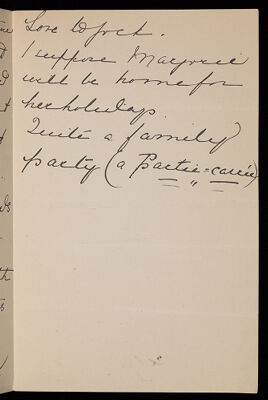 Love to Jock.
I suppose Marjorie
will be home for
her holidays.
Quite a family
party (a Partie-carée)